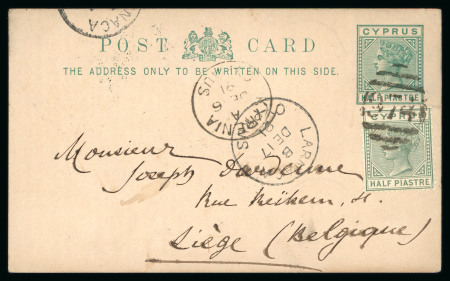 NACA
POST CARD
THE ADDRESS ONLY TO BE WRITTEN ON THIS SIDE.
CYPRUS
HALF PIASTRE
CYPRUS
HALF PIASTRE
KYRENIA
DE 6
LARNACA
DE 17
Monsieur
Joseph
Rue
Liège (Belgique)